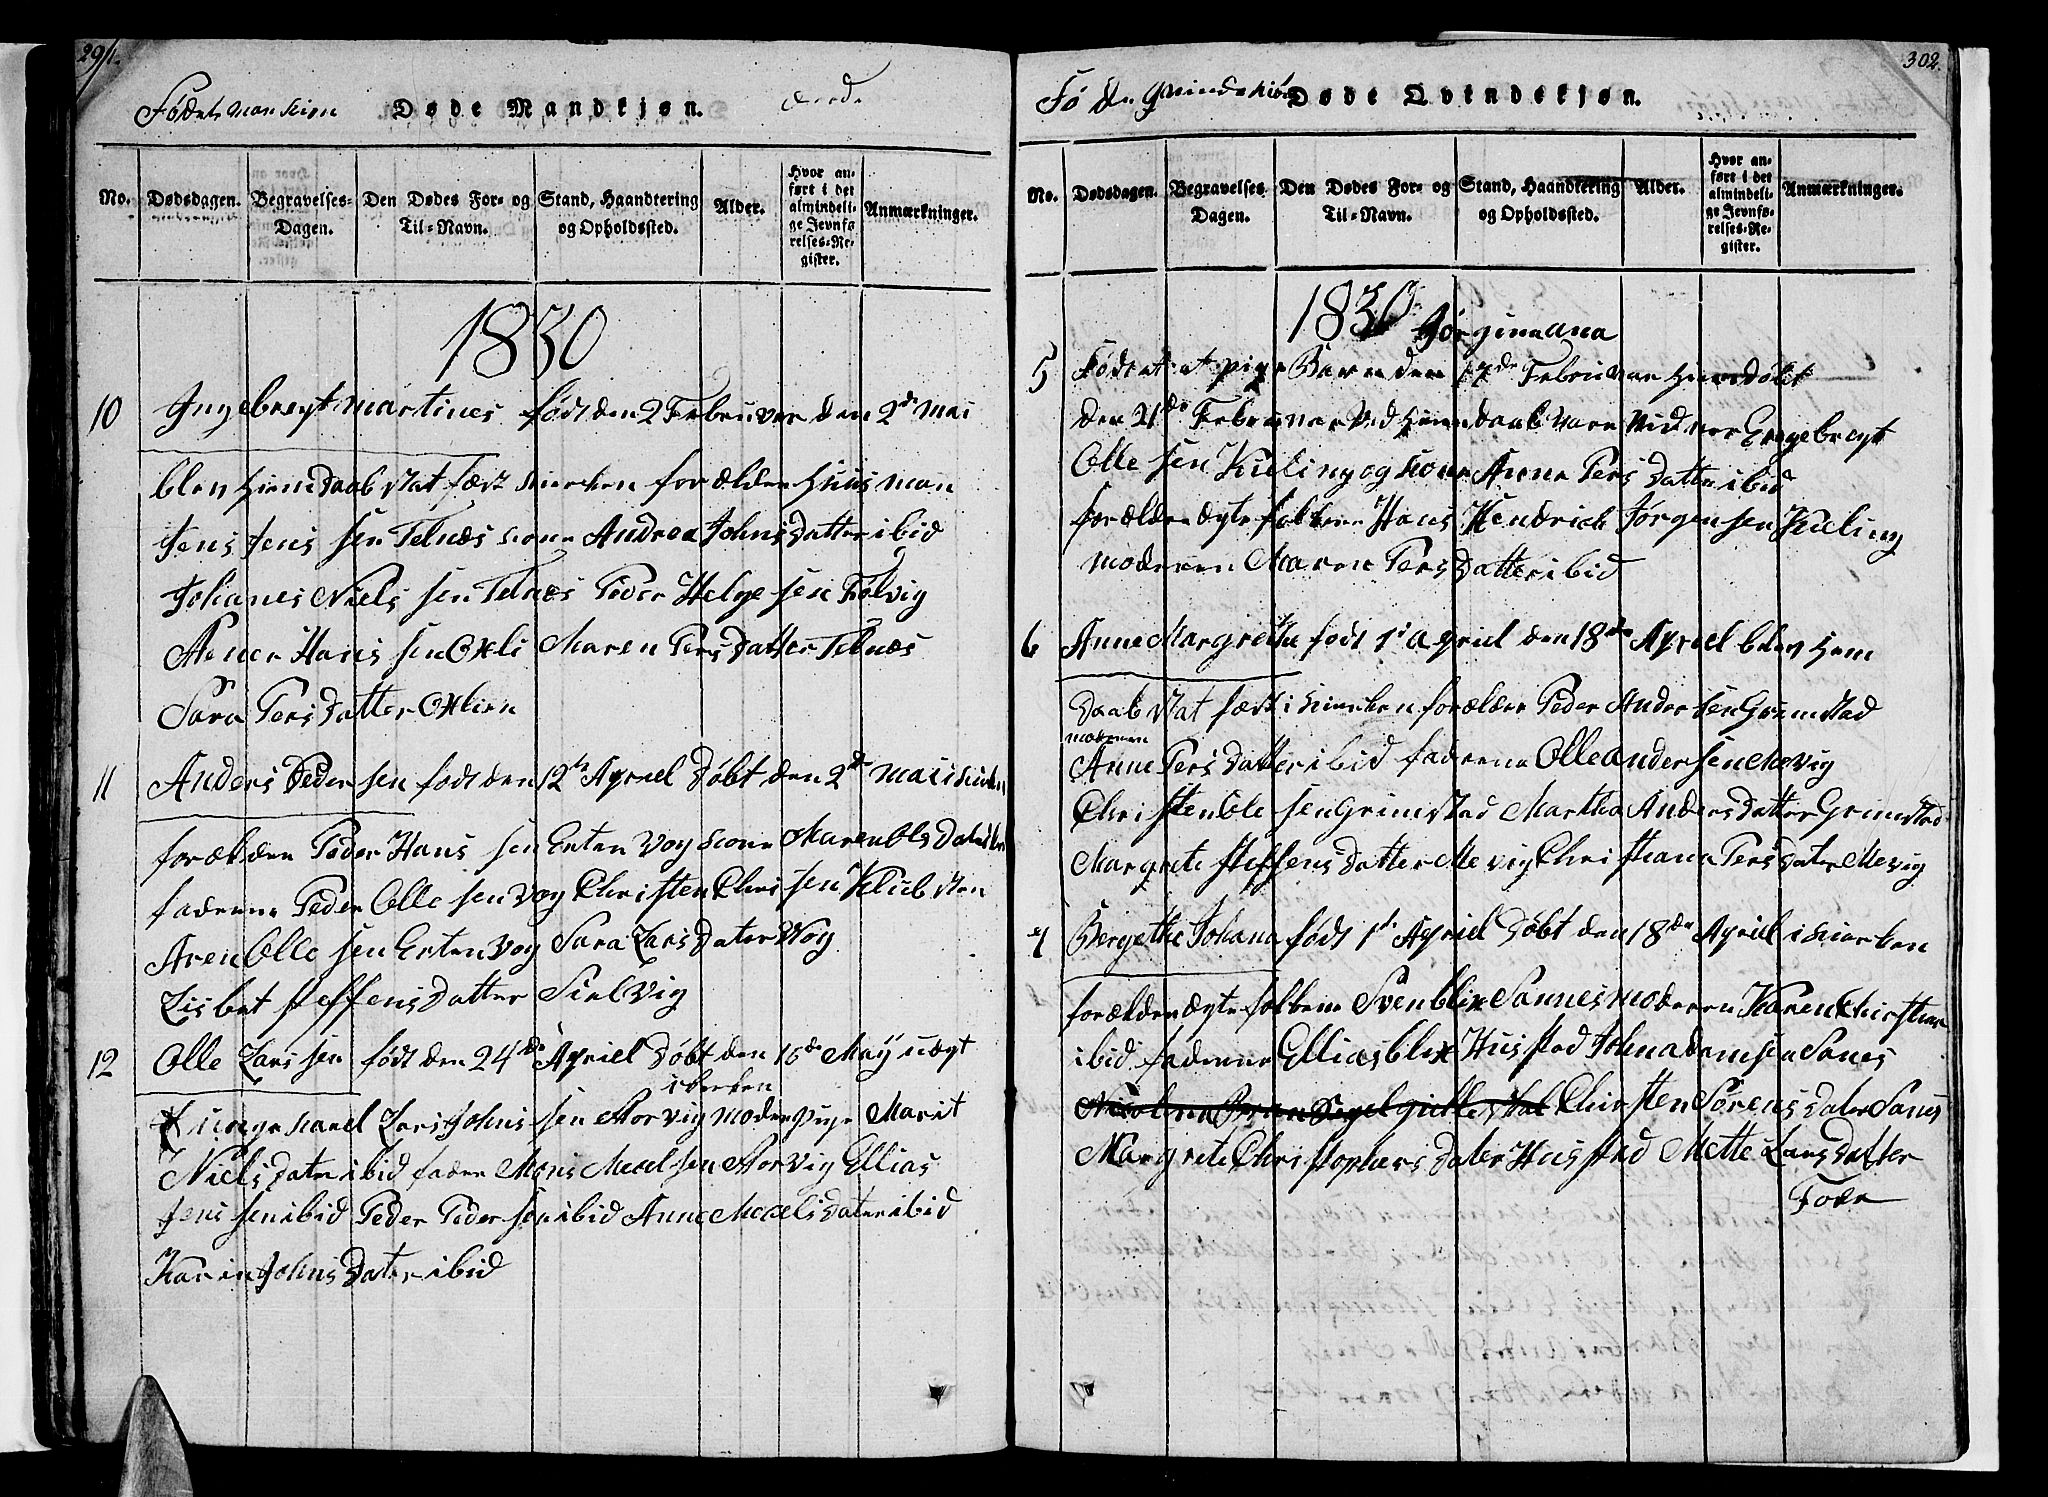 291.
Fødet mankiøn Døde Mandkjøn.
No. Dødsdagen. Begravelses-Dagen. Den Dødes For- og Til-Navn. Stand, Haandtering og Opholdssted. Alder. Hvor anført i det almindelige Jevnførelses-Register. Anmærkninger.
1830
10 Ingebregt Martines født den 2 Februver den 2de Mai
blev Hiem Daab Stat fæst kierken forældre Huusman
Jens Jens sen Telnæs kone Andrea Johns Datter ibid
Johanes Niels sen Telnæs Peder Helge sen Følvig
Abner Hans sen Oxli Maren Pers Datter Telnæs
Sara Pers Datter Oxlien
11 Anders Peder sen født den 12te Apriel Døbt den 2de Mai i kirken
forældre Peder Hans sen Erten Vog kone Maren Ols Dater
faderne Peder Olle sen Vog Christen Chri sen Klub sten
Aren Olle sen Erten Vog Sara Lars Dater Vog
Lisbet Steffens Datter Sielvig
12 Olle Lars sen født den 24de Apriel Døbt den 16de May uægt
i kierken
Lars Johns sen Storvig moder pige Marit
Niels Dater ibid fadere Mons sen Storvig Ellias
Jens sen ibid Peder Peder sen ibid Anne Dater ibid
Karin Johns Dater ibid
302.
Fø de Qvindekiøn Døde Qvindekjøn.
No. Dødsdagen. Begravelses Dagen. Den Dødes For- og Til-Navn. Stand, Haandtering og Opholdssted. Alder. Hvor anført i det almindelige Jevnførelses-Register. Anmærkninger.
1830 Jørgina Ana
5 Født et pige Barn den 17de Februar Hiemdøbt
den 21de Februar Ved Hiemdaab vare Vidner Engebregt
Olle sen Kieling og kone Anne Pers Datter ibid
forældre ægte folkene Hans Hendrich Jørgen sen Kieling
moderen Maren Pers Datter ibid
6 Anne Margrethe født 1te Apriel den 18de Apriel blev Hiem
Daab Stat fæst i kierken forældre Peder Ander sen Grimstad
moderen
Anne Pers Datter ibid faderne Olle Ander sen Mevig
Christen Ole sen Grimstad Martha Anders Datter Grimstad
Margrete Steffens Datter Mevig Christiana Pers Dater Mevig
7 Bergethe Johana født 1te Apriel Døbt den 18de Apriel i kierken
forældre ægte folkene Svend Blix Sannes moderen Karen
ibid faderne Ellias Blix Husstad John Adam sen Sanes
Christen Sørens Dater Sanes
Margrete Christophers Dater Husstad Mette Lars Datter